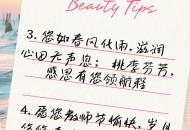 Beauty Tips
3.您如春风化雨,滋润
心田无声息;桃李芬芳,
感恩有您领航程
4.愿您教师节愉快,岁月